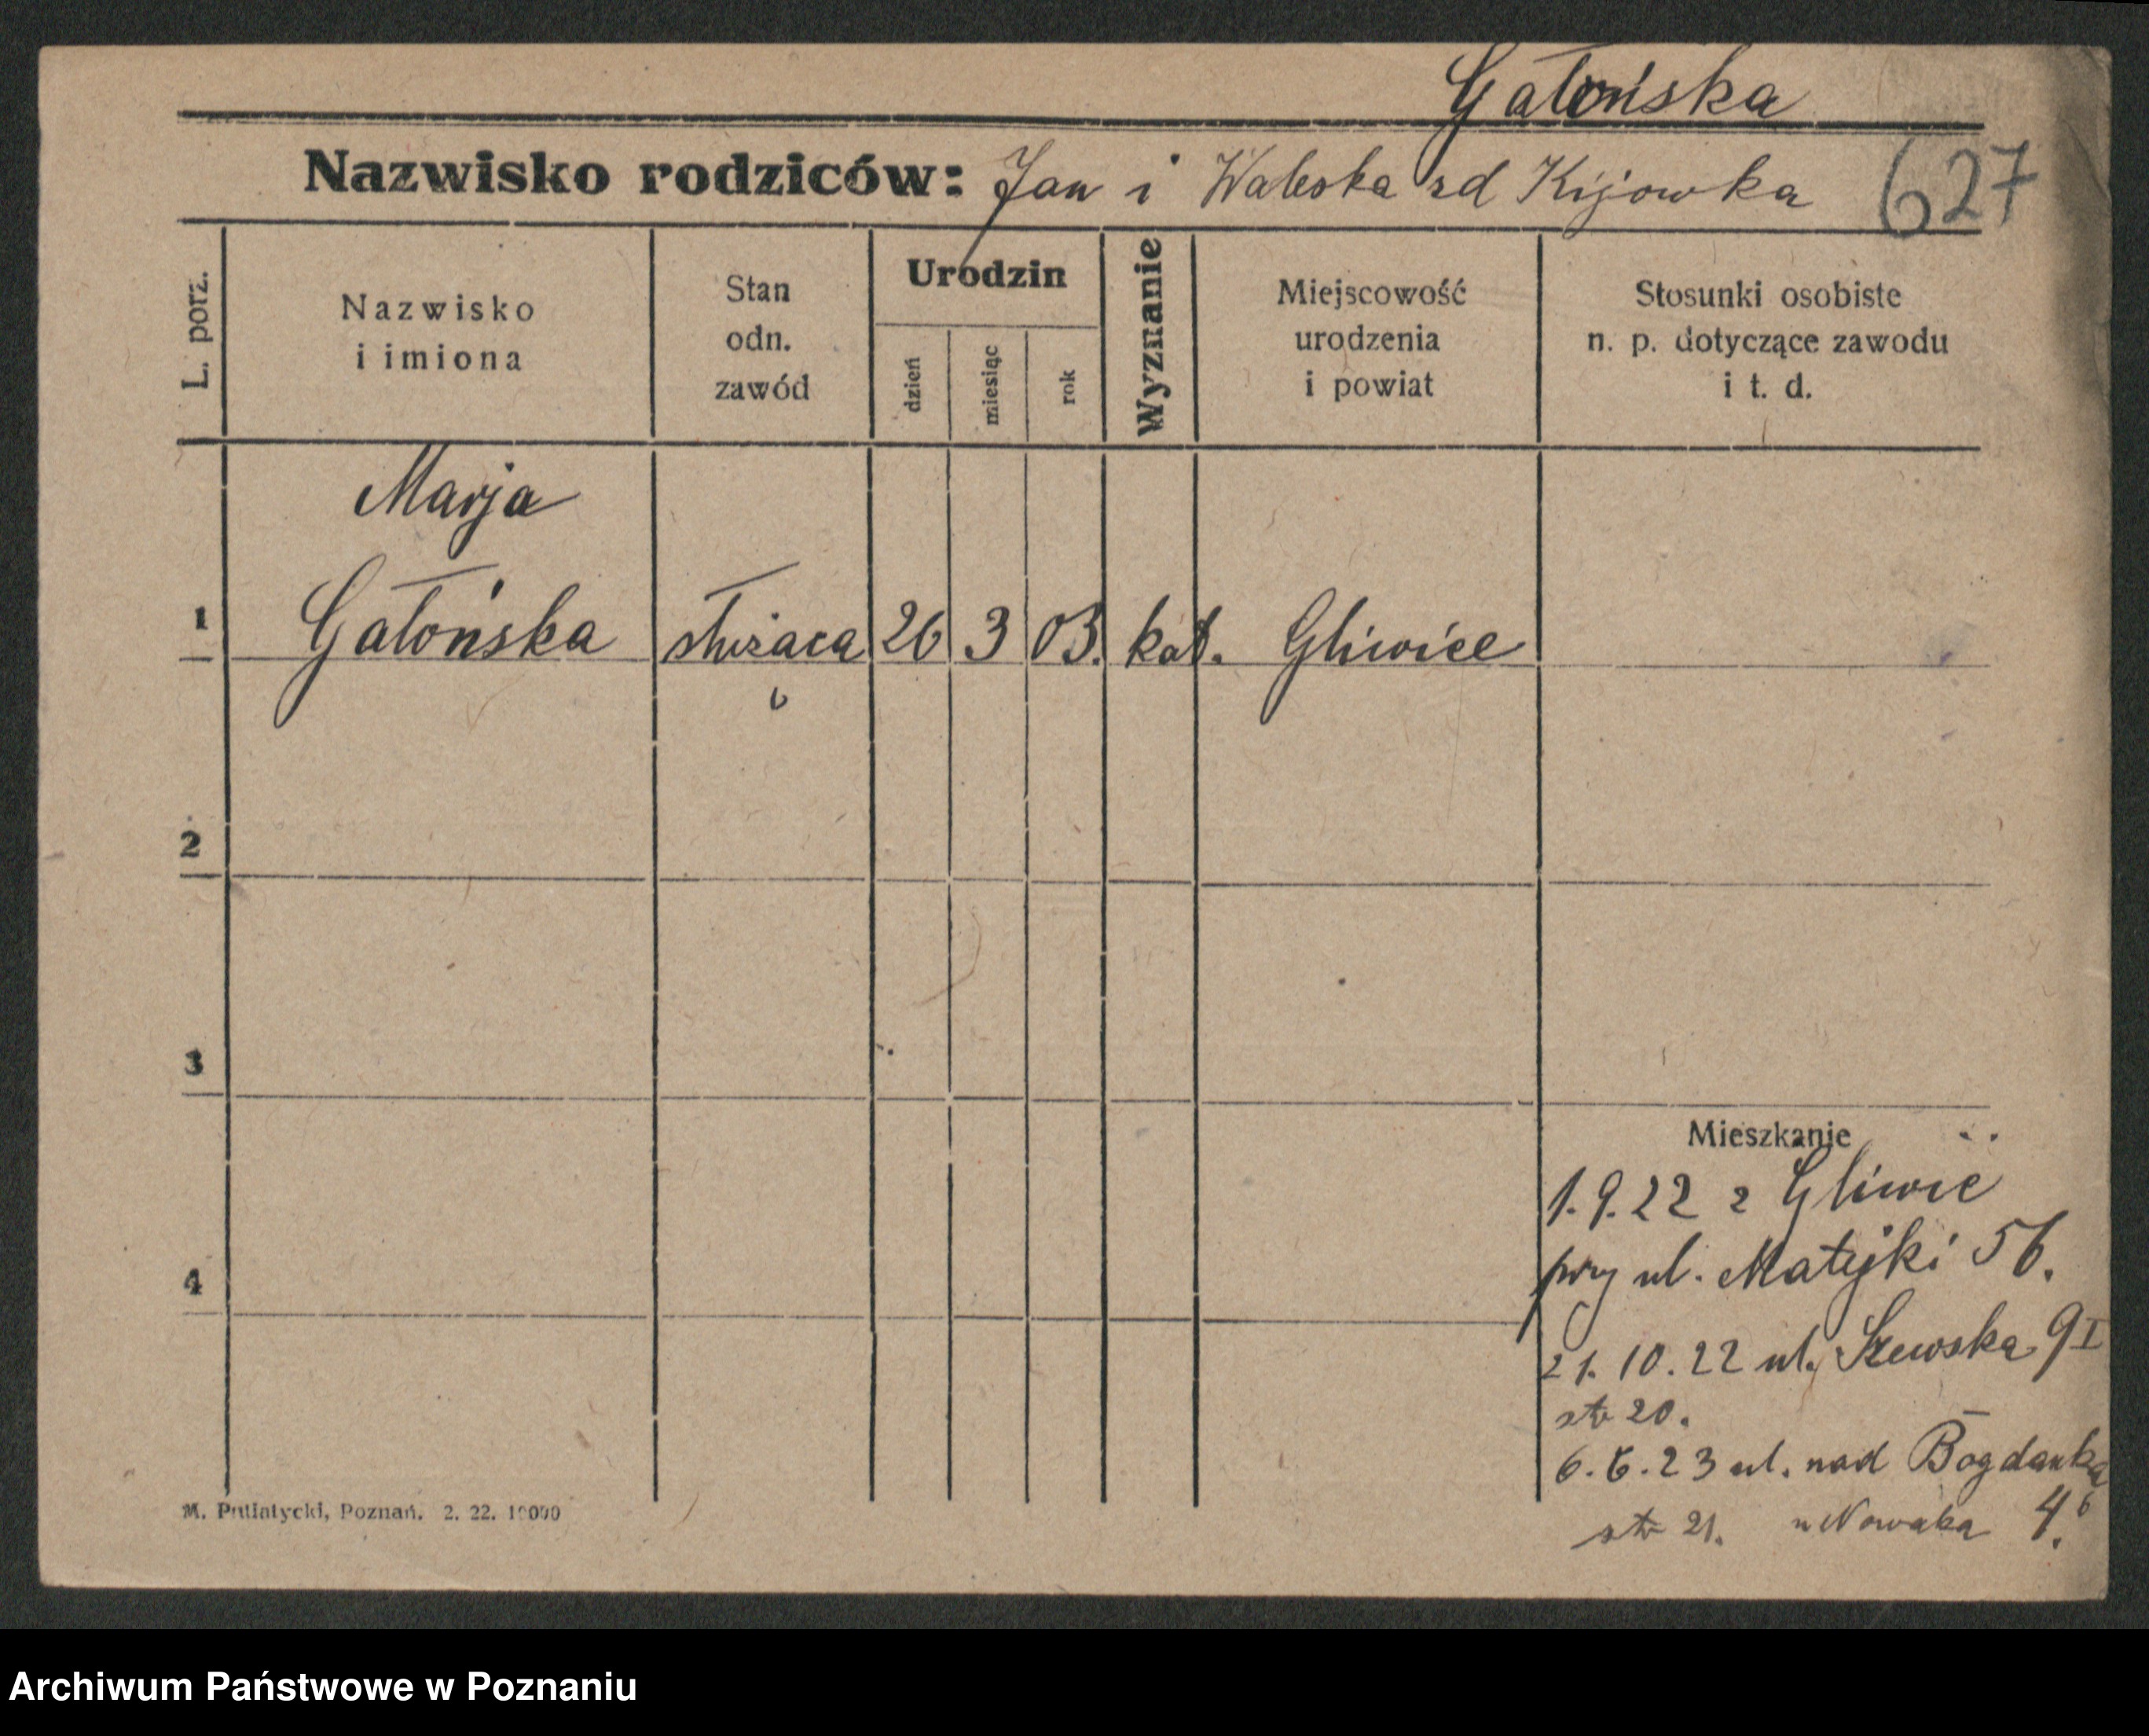 Gałońska
Nazwisko rodziców: Jan i Waleska zd Kijowka 627
L. porz.
Nazwisko
i imiona
Stan
odn.
zawód
Urodzin
dzień
miesiąc
rok
Wyznanie
Miejscowość
urodzenia
i powiat
Stosunki osobiste
n. p. dotyczące zawodu
i t. d.
Marja
1 Gałońska służąca 26 3 03. kat. Gliwice
2
3
4
Mieszkanie
1.9.22 z Gliwic
przy ul. Matejki 56.
21.10.22 ul. Szewska 9 I
str 20.
6.6.23 ul. nad Bogdanką
str 21. u Nowaka 4.
M. Putiatycki, Poznań. 2. 22. 10000
Archiwum Państwowe w Poznaniu